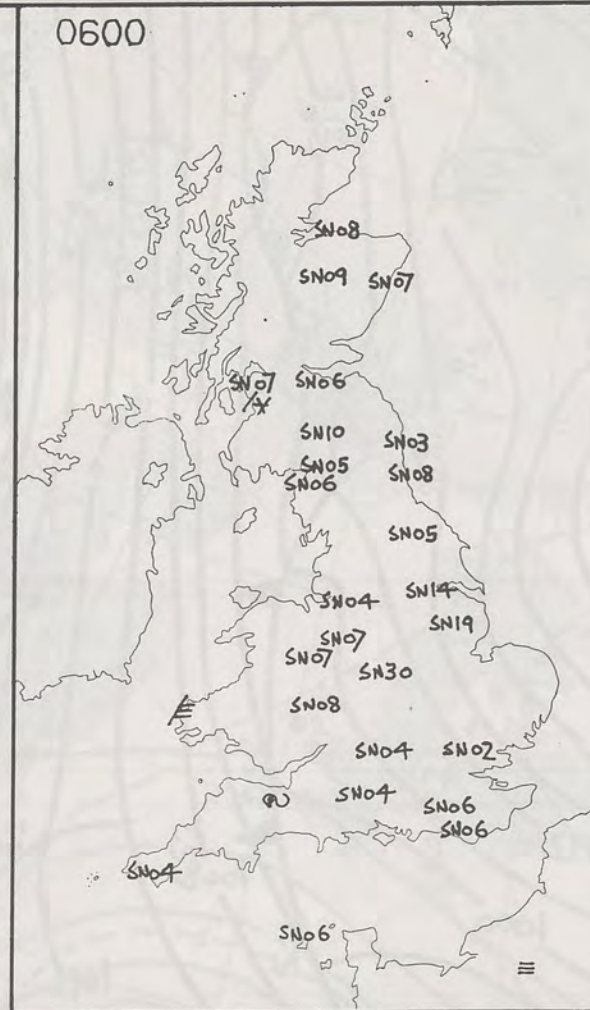 0600
SN08
SN09 SN07
SN07 SN06
SN10
SN03
SN05
SN08
SN06
SN05
SN14
SN04
SN19
SN07
SN07
SN30
SN08
SN04 SN02
SN04
SN06
SN06
SN04
SN06